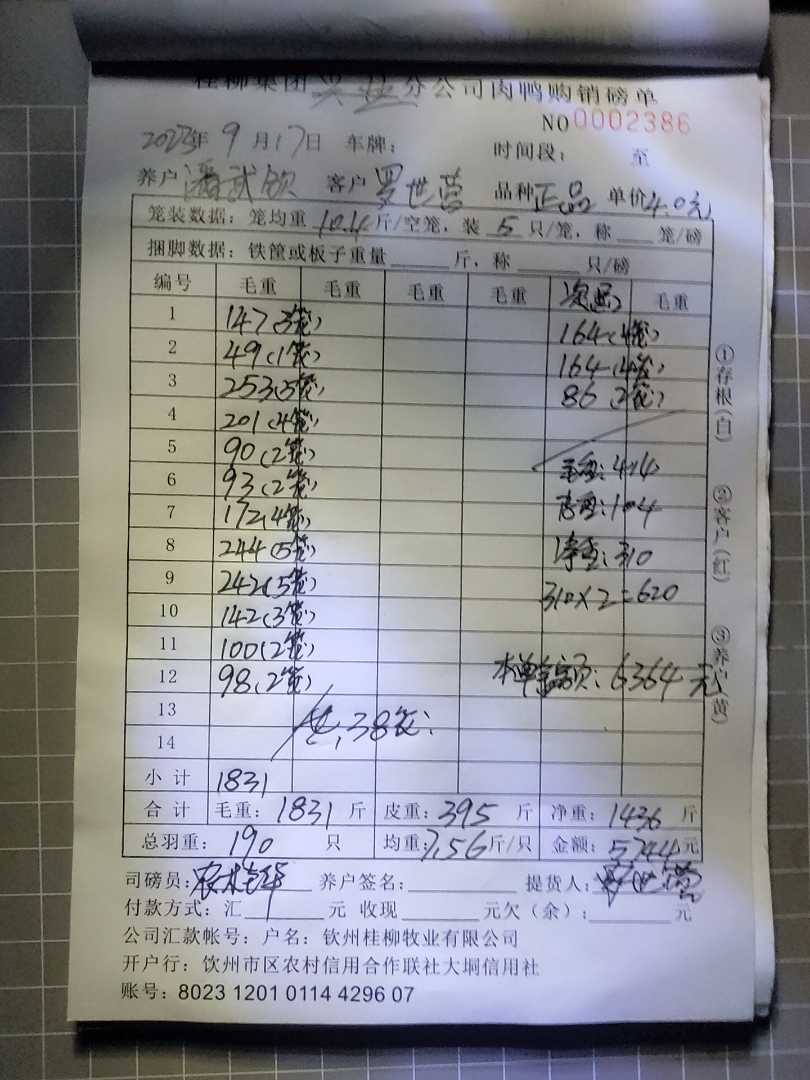 桂柳集团 分公司肉鸭购销磅单
NO 0002386
2023年 9 月 17日 车牌： 时间段： 至
养户 潘武钦 客户 罗世营 品种 正品 单价 4.0元
笼装数据：笼均重 10.4 斤/空笼，装 5 只/笼，称 笼/磅
捆脚数据：铁筐或板子重量 斤，称 只/磅
编号 毛重 毛重 毛重 毛重 次品 毛重
1 147(3笼) 164(4笼)
2 49(1笼) 164(4笼)
3 253(5笼) 86(2笼)
4 201(4笼)
5 90(2笼) 毛重：414
6 93(2笼) 皮重：104
7 172(4笼)
8 244(5笼) 净重：310
9 242(5笼) 310×2=620
10 142(3笼)
11 100(2笼)
12 98(2笼) 本单总额：6364元
13 共38笼
14
小计 1831
合计 毛重：1831 斤 皮重：395 斤 净重：1436 斤
总羽重：190 只 均重：7.56斤/只 金额：5744元
司磅员： 养户签名： 提货人：罗世营
付款方式：汇 元 收现 元欠（余）： 元
公司汇款帐号：户名：钦州桂柳牧业有限公司
开户行：钦州市区农村信用合作联社大垌信用社
账号：8023 1201 0114 4296 07
①存根（白） ②客户（红） ③养户（黄）